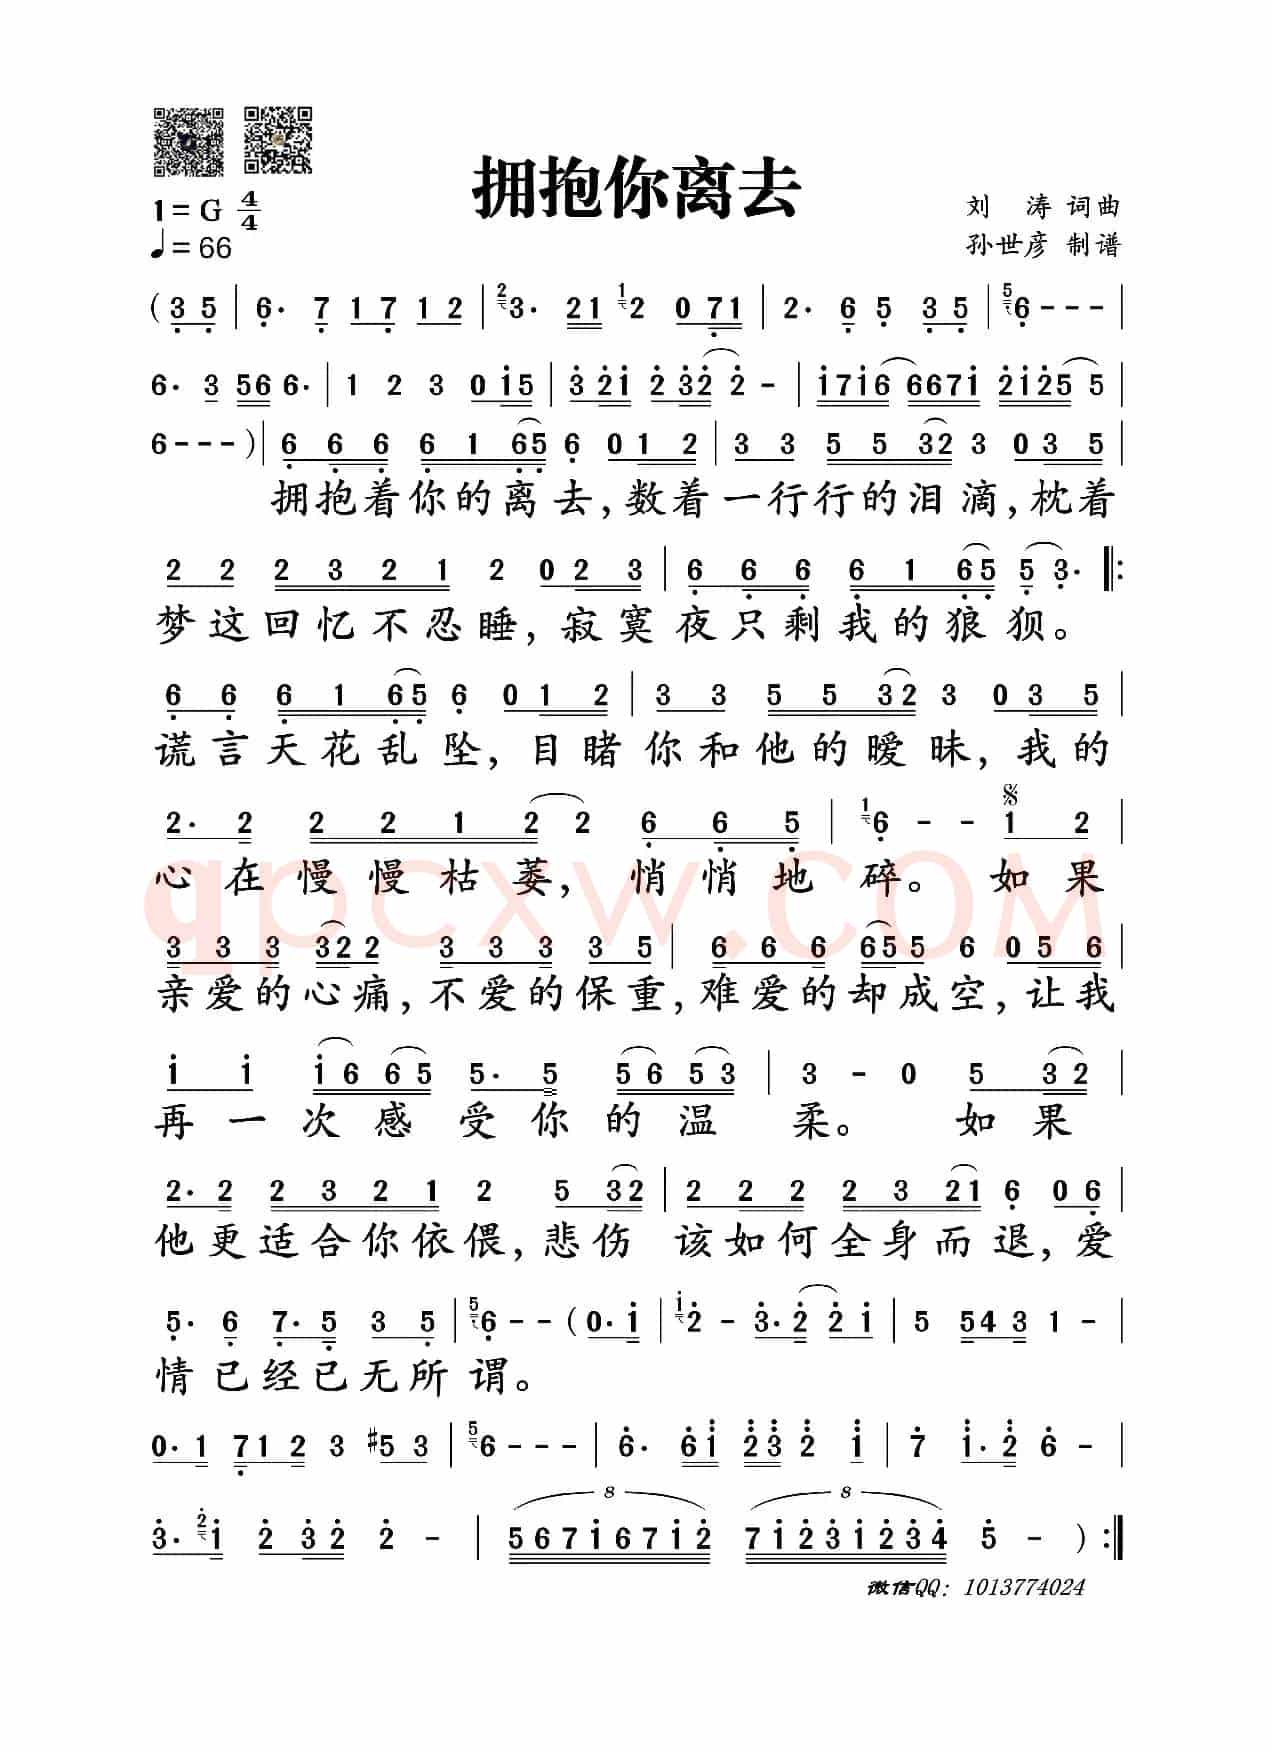 拥抱你离去
1=G 4/4
刘 涛 词曲
♩=66
孙世彦 制谱
(3 5 | 6· 7 1 7 1 2 | 2 3· 21 1 2 0 71 | 2· 6 5 3 5 | 5 6 - - - |
6· 3 56 6· | 1 2 3 0 i5 | 3 2i 2 32 2 - | i7i6 667i 2i25 5 |
6 - - - ) | 6 6 6 6 1 65 6 0 1 2 | 3 3 5 5 32 3 0 3 5 |
拥抱着你的离去,数着一行行的泪滴,枕着
2 2 2 3 2 1 2 0 2 3 | 6 6 6 6 1 65 5 3· ‖:
梦这回忆不忍睡,寂寞夜只剩我的狼狈。
6 6 6 1 65 6 0 1 2 | 3 3 5 5 32 3 0 3 5 |
谎言天花乱坠,目睹你和他的暧昧,我的
2· 2 2 2 1 2 2 6 6 5 | 1 6 - - 𝄋 1 2 |
心在慢慢枯萎,悄悄地碎。如果
3 3 3 322 3 3 3 3 5 | 6 6 6 655 6 0 5 6 |
亲爱的心痛,不爱的保重,难爱的却成空,让我
i i i 6 6 5 5· 5 5 6 5 3 | 3 - 0 5 32 |
再一次感受你的温柔。如果
2· 2 2 3 2 1 2 5 32 | 2 2 2 2 3 21 6 0 6 |
他更适合你依偎,悲伤 该如何全身而退,爱
5· 6 7· 5 3 5 | 5 6 - - (0· i | i 2 - 3· 2 2 i | 5 54 3 1 - |
情已经已无所谓。
0· 1 7 1 2 3 #5 3 | 5 6 - - - | 6· 6i 23 2 i | 7 i· 2 6 - |
3· 2 i 2 32 2 - | 8 567i67i2 8 7i23i234 5 - ) :‖
微信QQ: 1013774024
qpcxw.com